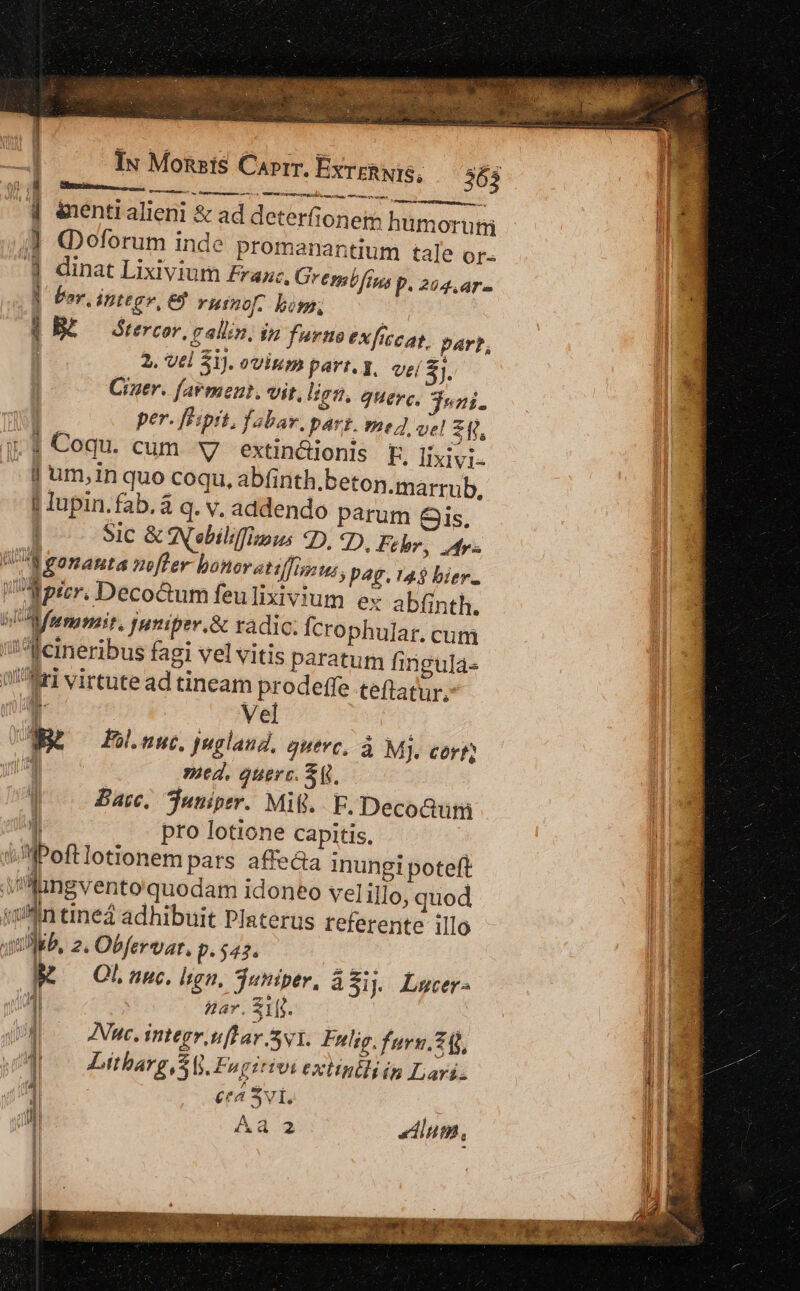 IN MORBIS CAPIT. EXTERNIS. 363
menti alieni & ad deterſionem humorum
Doloſorum inde promanantium tale or-
dinat Lixivium Franc. Grembſius p. 204. ar-
bor. integr. & ruinoſ. hom.
℞ Stercor. gallin. in furno exſiccat. part.
2. vel ʒij. ovium part. 1. vel ʒj.
Ciner. ſarment. vit. lign. querc. Juni-
per. ſtipit. fabar. part. med. vel ʒß.
Coqu. cum 🜄 extinctionis F. lixivi-
um, in quo coqu. abſinth. beton. marrub.
lupin. fab. ā q. v. addendo parum 🜔is.
Sic & Nobiliſſimus D. D. Febr. Ar-
gonauta noſter honoratiſſimus, pag. 149 hier-
picr. Decoctum ſeu lixivium ex abſinth.
ſummit. juniper. & radic. ſcrophular. cum
cineribus fagi vel vitis paratum ſingula-
ri virtute ad tineam prodeſſe teſtatur.
Vel
℞ Fol. nuc. jugland. querc. ā Mj. cort.
med. querc. ʒß.
Bacc. Juniper. Miß. F. Decoctum
pro lotione capitis.
Poſt lotionem pars affecta inungi poteſt
ungvento quodam idoneo vel illo, quod
in tineâ adhibuit Platerus referente illo
lib. 2. Obſervat. p. 543.
℞ Ol. nuc. lign. Juniper. ā ʒij. Lucer-
nar. ʒiß.
Nuc. integr. uſtar. ʒvi. Fulig. furn. ʒß.
Litharg. ʒß. Fugitivi extincti in Lari-
cea ʒvi.
Aa 2 Alum.